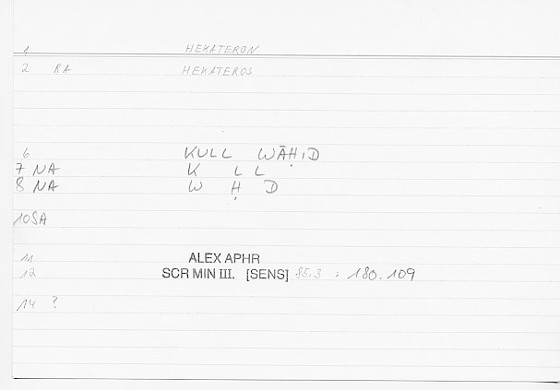 1 HEKATERON
2 RA HEKATEROS
6 KULL WĀḤID
7 NA K L L
8 NA W Ḥ D
10 SA
11 ALEX APHR
12 SCR MIN III. [SENS] 85.3 : 180.109
14 ?